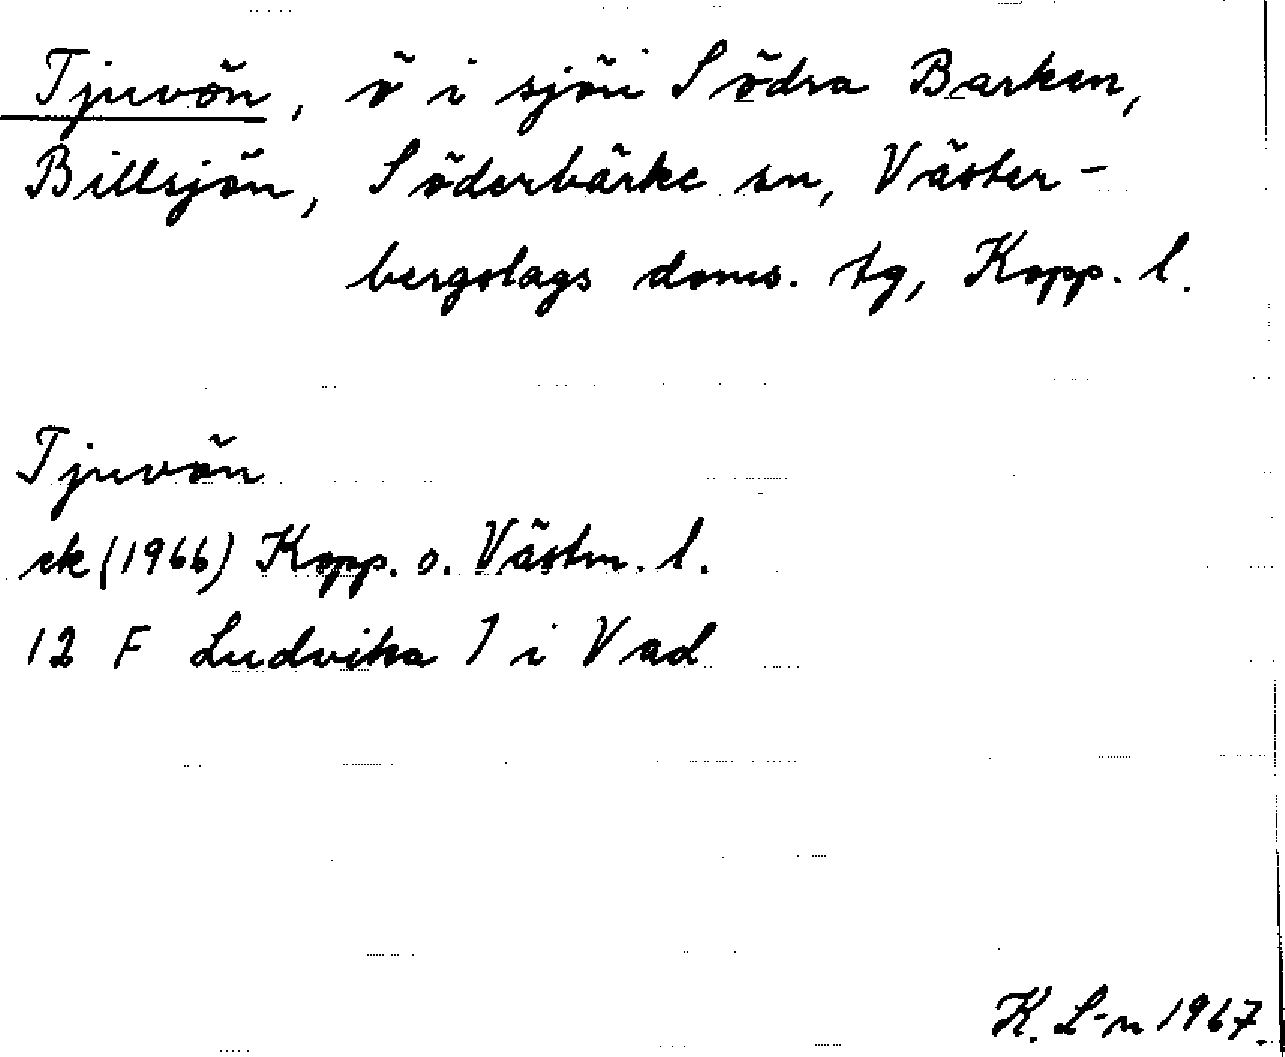 Tjuvön, ö i sjön Södra Barken,
Billsjön, Söderbärke sn, Väster-
bergslags doms. tg, Kopp. l.
Tjuvön
ek (1966) Kopp. o. Västm. l.
12 F Ludvika 7 i Vad
K. L-n 1967.